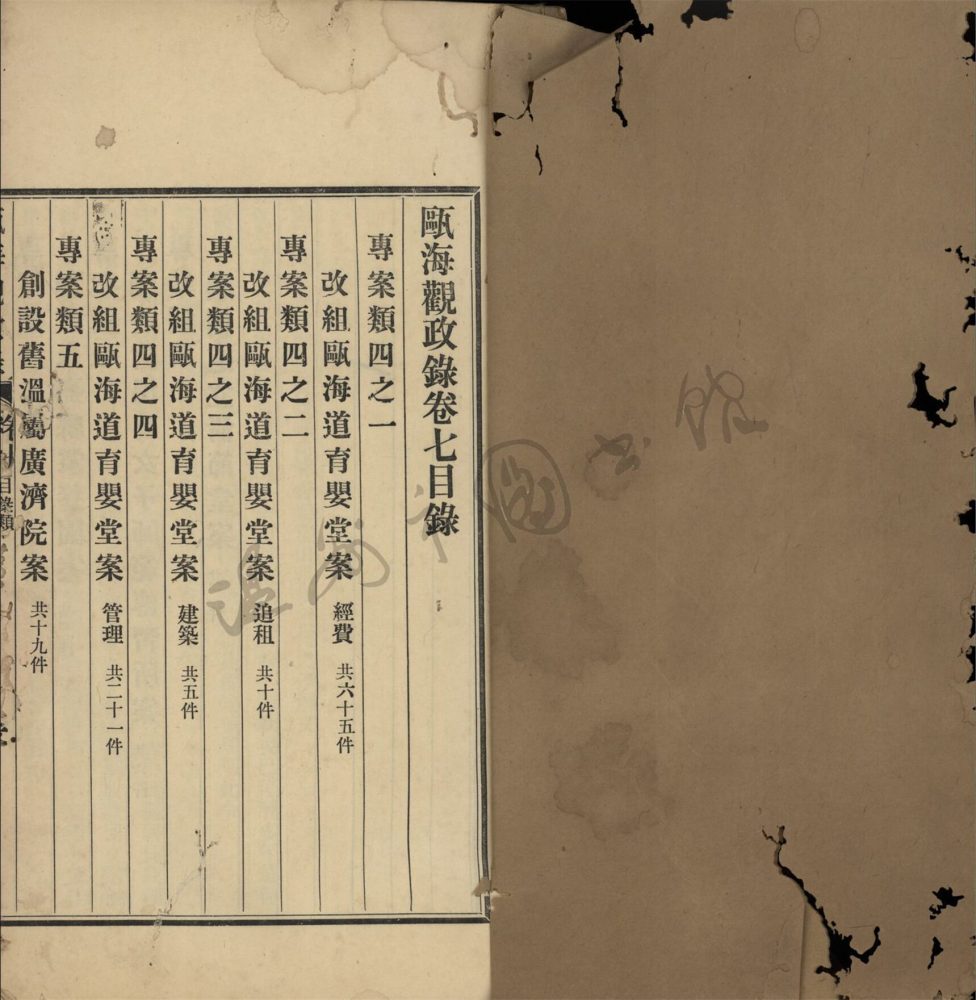 甌海觀政錄卷七目錄
專案類四之一
改組甌海道育嬰堂案 經費 共六十五件
專案類四之二
改組甌海道育嬰堂案 追租 共十件
專案類四之三
改組甌海道育嬰堂案 建築 共五件
專案類四之四
改組甌海道育嬰堂案 管理 共二十一件
專案類五
創設舊溫屬廣濟院案 共十九件
目錄類
温州市图书馆